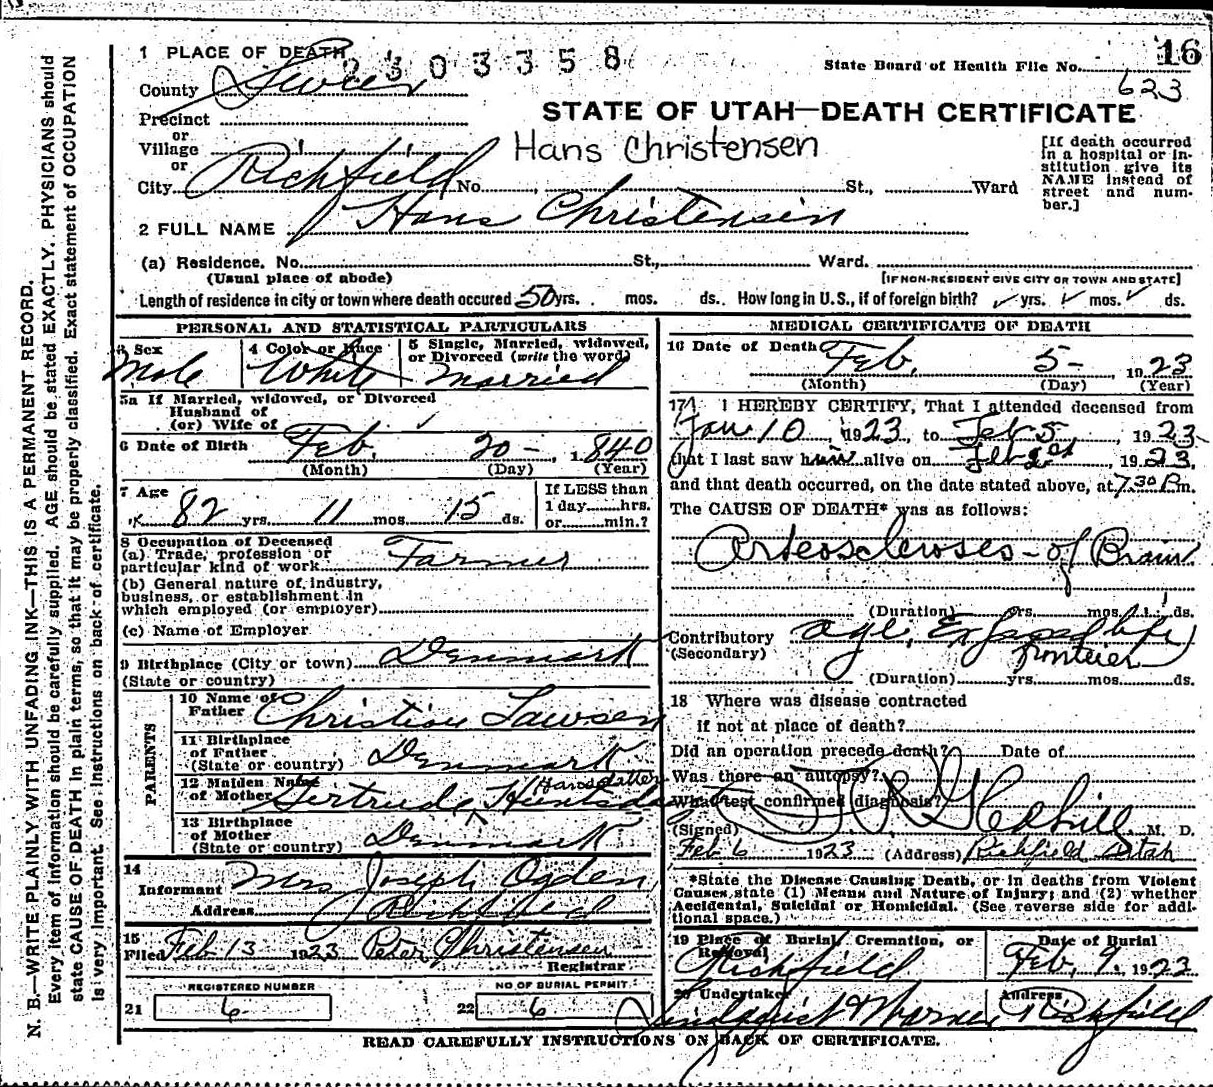 16
1 PLACE OF DEATH
2303358
State Board of Health File No.
623
County Sevier
STATE OF UTAH—DEATH CERTIFICATE
Precinct
or
Village
or
Hans Christensen
[If death occurred in a hospital or in-stitution give its NAME instead of street and num-ber.]
City Richfield No. , St., Ward
2 FULL NAME Hans Christensen
(a) Residence. No. St., Ward.
(Usual place of abode) [IF NON-RESIDENT GIVE CITY OR TOWN AND STATE]
Length of residence in city or town where death occured 50 yrs. mos. ds. How long in U.S., if of foreign birth? yrs. mos. ds.
PERSONAL AND STATISTICAL PARTICULARS
3 Sex Male
4 Color or Race White
5 Single, Married, widowed, or Divorced (write the word) Married
5a If Married, widowed, or Divorced
Husband of
(or) Wife of
6 Date of Birth Feb. 20 - 1840
(Month) (Day) (Year)
7 Age 82 yrs. 11 mos. 15 ds.
If LESS than
1 day......hrs.
or......min.?
8 Occupation of Deceased
(a) Trade, profession or
particular kind of work Farmer
(b) General nature of industry,
business, or establishment in
which employed (or employer)
(c) Name of Employer
9 Birthplace (City or town) Denmark
(State or country)
PARENTS
10 Name of Father Christian Lawsen
11 Birthplace of Father (State or country) Denmark
12 Maiden Name of Mother Gertrude Hansdatter
13 Birthplace of Mother (State or country) Denmark
14
Informant Mrs Joseph Ogden
Address Richfield
15
Filed Feb 13 1923 Peter Christensen
Registrar
REGISTERED NUMBER
21 6
NO. OF BURIAL PERMIT
22 6
MEDICAL CERTIFICATE OF DEATH
16 Date of Death Feb. 5- 1923
(Month) (Day) (Year)
17 I HEREBY CERTIFY, That I attended deceased from
Jan 10, 1923, to Feb 5, 1923
that I last saw him alive on Feb, 1923,
and that death occurred, on the date stated above, at 7.30 P.m.
The CAUSE OF DEATH* was as follows:
Arteoscleroses - of Brain
(Duration) yrs. mos. ds.
Contributory age, Exposed life
(Secondary) fronteier
(Duration) yrs. mos. ds.
18 Where was disease contracted
if not at place of death?
Did an operation precede death? Date of
Was there an autopsy?
What test confirmed diagnosis?
(Signed) Gledhill M. D.
Feb 6 1923 (Address) Richfield Utah
*State the Disease Causing Death, or in deaths from Violent
Causes, state (1) Means and Nature of Injury; and (2) whether
Accidental, Suicidal or Homicidal. (See reverse side for addi-
tional space.)
19 Place of Burial, Cremation, or Removal Richfield
Date of Burial Feb. 9, 1923
20 Undertaker
Address Richfield
READ CAREFULLY INSTRUCTIONS ON BACK OF CERTIFICATE.
N. B.—WRITE PLAINLY WITH UNFADING INK—THIS IS A PERMANENT RECORD.
Every item of information should be carefully supplied. AGE should be stated EXACTLY. PHYSICIANS should
state CAUSE OF DEATH in plain terms, so that it may be properly classified. Exact statement of OCCUPATION
is very important. See instructions on back of certificate.